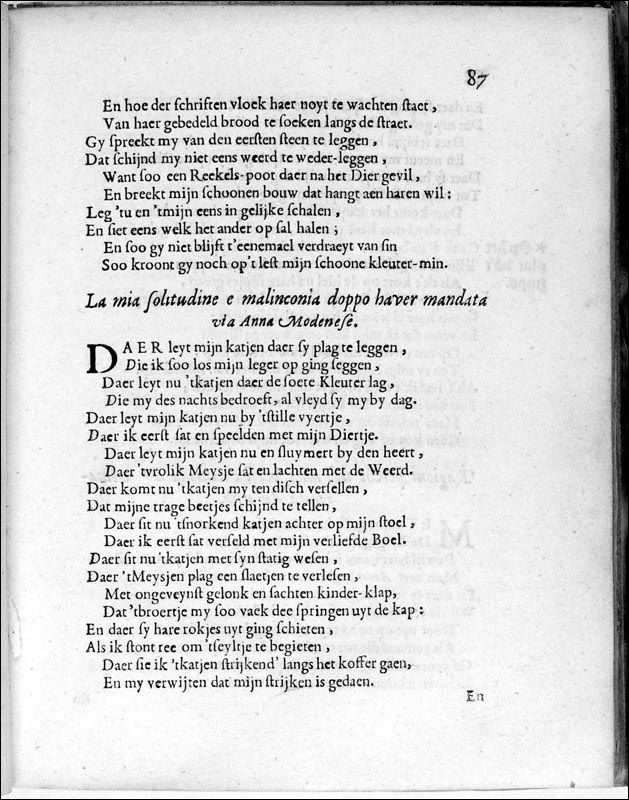 87
En hoe der schriften vloek haer noyt te wachten staet,
Van haer gebedeld brood te soeken langs de straet.
Gy spreekt my van den eersten steen te leggen,
Dat schijnd my niet eens weerd te weder-leggen,
Want soo een Reekels-poot daer na het Dier gevil,
En breekt mijn schoonen bouw dat hangt aen haren wil:
Leg 'tu en 'tmijn eens in gelijke schalen,
En siet eens welk het ander op sal halen;
En soo gy niet blijft t'eenemael verdraeyt van sin
Soo kroont gy noch op't lest mijn schoone kleuter-min.
La mia solitudine e malinconia doppo haver mandata
via Anna Modenese.
DAER leyt mijn katjen daer sy plag te leggen,
Die ik soo los mijn leger op ging seggen,
Daer leyt nu 'tkatjen daer de soete Kleuter lag,
Die my des nachts bedroeft, al vleyd sy my by dag.
Daer leyt mijn katjen nu by 'tstille vyertje,
Daer ik eerst sat en speelden met mijn Diertje.
Daer leyt mijn katjen nu en sluymert by den heert,
Daer 'tvrolik Meysje sat en lachten met de Weerd.
Daer komt nu 'tkatjen my ten disch versellen,
Dat mijne trage beetjes schijnd te tellen,
Daer sit nu 'tsnorkend katjen achter op mijn stoel,
Daer ik eerst sat verseld met mijn verliefde Boel.
Daer sit nu 'tkatjen met syn statig wesen,
Daer 'tMeysjen plag een slaetjen te verlesen,
Met ongeveynst gelonk en sachten kinder-klap,
Dat 'tbroertje my soo vaek dee springen uyt de kap:
En daer sy hare rokjes uyt ging schieten,
Als ik stont ree om 'tseyltje te begieten,
Daer sie ik 'tkatjen strijkend' langs het koffer gaen,
En my verwijten dat mijn strijken is gedaen.
En